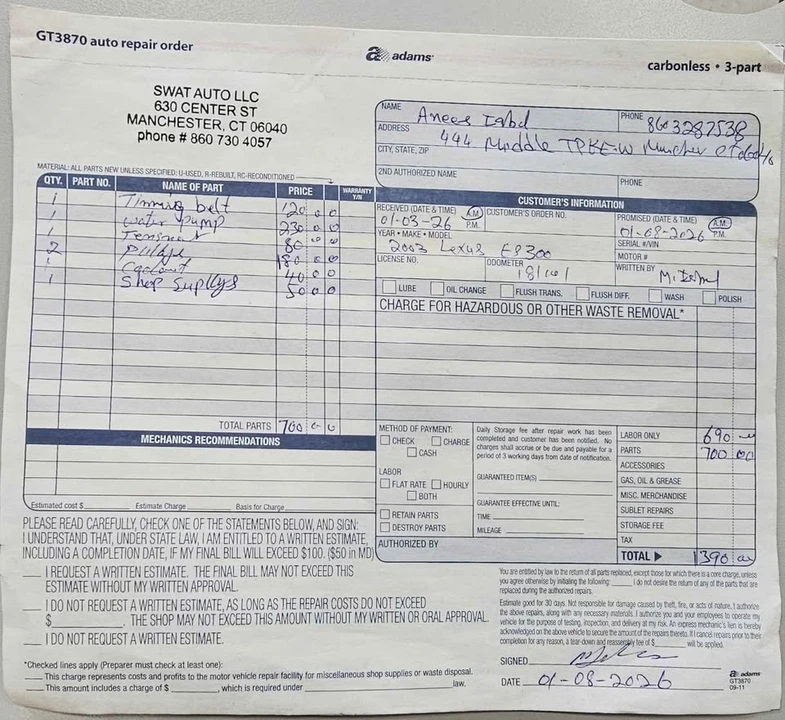 GT3870 auto repair order
adams
carbonless • 3-part
SWAT AUTO LLC
630 CENTER ST
MANCHESTER, CT 06040
phone # 860 730 4057
NAME Anees
PHONE 860 3287538
ADDRESS 444 Middle TPKE-W
CITY, STATE, ZIP
2ND AUTHORIZED NAME
PHONE
MATERIAL: ALL PARTS NEW UNLESS SPECIFIED: U-USED, R-REBUILT, RC-RECONDITIONED
QTY. PART NO. NAME OF PART PRICE WARRANTY Y/N
1 Timing belt 120 00
1 water pump 230 00
1 80 00
2 180 00
1 40 00
1 Shop Supllys 50 00
TOTAL PARTS 700 00
CUSTOMER'S INFORMATION
RECEIVED (DATE & TIME) 01-03-26 A.M. P.M.
CUSTOMER'S ORDER NO.
PROMISED (DATE & TIME) 01-08-2026 A.M. P.M.
YEAR • MAKE • MODEL 2003 Lexus ES300
SERIAL #/VIN
MOTOR #
LICENSE NO.
ODOMETER
WRITTEN BY
LUBE OIL CHANGE FLUSH TRANS. FLUSH DIFF. WASH POLISH
CHARGE FOR HAZARDOUS OR OTHER WASTE REMOVAL*
MECHANICS RECOMMENDATIONS
Estimated cost $ Estimate Charge Basis for Charge
METHOD OF PAYMENT:
CHECK CHARGE
CASH
LABOR
FLAT RATE HOURLY
BOTH
RETAIN PARTS
DESTROY PARTS
AUTHORIZED BY
Daily Storage fee after repair work has been
completed and customer has been notified. No
charges shall accrue or be due and payable for a
period of 3 working days from date of notification.
GUARANTEED ITEM(S)
GUARANTEE EFFECTIVE UNTIL:
TIME
MILEAGE
LABOR ONLY 690
PARTS 700 00
ACCESSORIES
GAS, OIL & GREASE
MISC. MERCHANDISE
SUBLET REPAIRS
STORAGE FEE
TAX
TOTAL 1390 00
PLEASE READ CAREFULLY, CHECK ONE OF THE STATEMENTS BELOW, AND SIGN:
I UNDERSTAND THAT, UNDER STATE LAW, I AM ENTITLED TO A WRITTEN ESTIMATE,
INCLUDING A COMPLETION DATE, IF MY FINAL BILL WILL EXCEED $100. ($50 in MD)
I REQUEST A WRITTEN ESTIMATE. THE FINAL BILL MAY NOT EXCEED THIS
ESTIMATE WITHOUT MY WRITTEN APPROVAL.
I DO NOT REQUEST A WRITTEN ESTIMATE, AS LONG AS THE REPAIR COSTS DO NOT EXCEED
$ . THE SHOP MAY NOT EXCEED THIS AMOUNT WITHOUT MY WRITTEN OR ORAL APPROVAL.
I DO NOT REQUEST A WRITTEN ESTIMATE.
*Checked lines apply (Preparer must check at least one):
This charge represents costs and profits to the motor vehicle repair facility for miscellaneous shop supplies or waste disposal.
This amount includes a charge of $ , which is required under law.
You are entitled by law to the return of all parts replaced, except those for which there is a core charge, unless
you agree otherwise by initialing the following I do not desire the return of any of the parts that are
replaced during the authorized repairs.
Estimate good for 30 days. Not responsible for damage caused by theft, fire, or acts of nature. I authorize
the above repairs, along with any necessary materials. I authorize you and your employees to operate my
vehicle for the purpose of testing, inspection, and delivery at my risk. An express mechanic's lien is hereby
acknowledged on the above vehicle to secure the amount of the repairs thereto. If I cancel repairs prior to their
completion for any reason, a tear-down and reassembly fee of $ will be applied.
SIGNED
DATE 01-08-2026
adams
GT3870
09-11